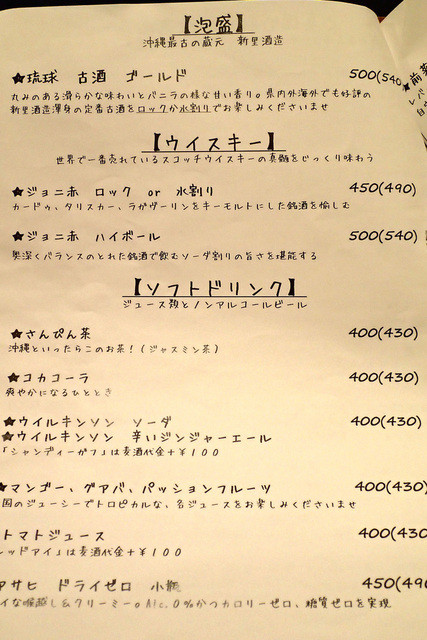 【泡盛】
沖縄最古の蔵元 新里酒造
★琉球 古酒 ゴールド 500(540
丸みのある滑らかな味わいとバニラの様な甘い香り。県内外海外でも好評の
新里酒造渾身の定番古酒をロックか水割りでお楽しみくださいませ
【ウイスキー】
世界で一番売れているスコッチウイスキーの真髄をじっくり味わう
★ジョニ赤 ロック or 水割り 450(490)
カードゥ、タリスカー、ラガヴーリンをキーモルトにした銘酒を愉しむ
★ジョニ赤 ハイボール 500(540)
奥深くバランスのとれた銘酒で飲むソーダ割りの旨さを堪能する
【ソフトドリンク】
ジュース類とノンアルコールビール
★さんぴん茶 400(430)
沖縄といったらこのお茶！(ジャスミン茶)
★コカコーラ 400(430)
爽やかになるひととき
★ウイルキンソン ソーダ 400(430)
★ウイルキンソン 辛いジンジャーエール
「シャンディーガフ」は麦酒代金+￥100
★マンゴー、グアバ、パッションフルーツ 400(430)
国のジューシーでトロピカルな、名ジュースをお楽しみくださいませ
トマトジュース 400(430
レッドアイ」は麦酒代金+￥100
アサヒ ドライゼロ 小瓶 450(490
イな喉越し&クリーミー。Alc.0%かつカロリーゼロ、糖質ゼロを実現